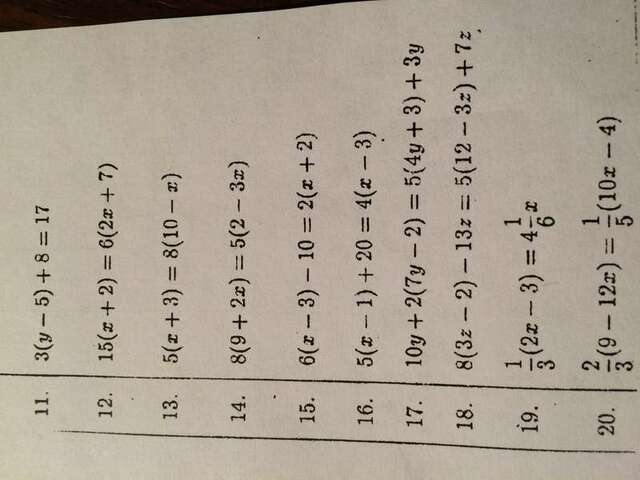 11. 3(y − 5) + 8 = 17
12. 15(x + 2) = 6(2x + 7)
13. 5(x + 3) = 8(10 − x)
14. 8(9 + 2x) = 5(2 − 3x)
15. 6(x − 3) − 10 = 2(x + 2)
16. 5(x − 1) + 20 = 4(x − 3)
17. 10y + 2(7y − 2) = 5(4y + 3) + 3y
18. 8(3z − 2) − 13z = 5(12 − 3z) + 7z
19. 1/3(2x − 3) = 4 1/6x
20. 2/3(9 − 12x) = 1/5(10x − 4)